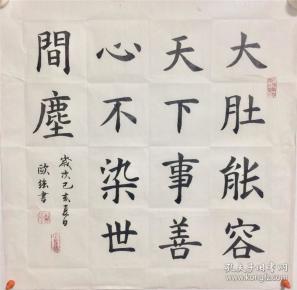 大肚能容
天下事善
心不染世
間塵
歲次己亥夏日
欧强書
孔夫子旧书网